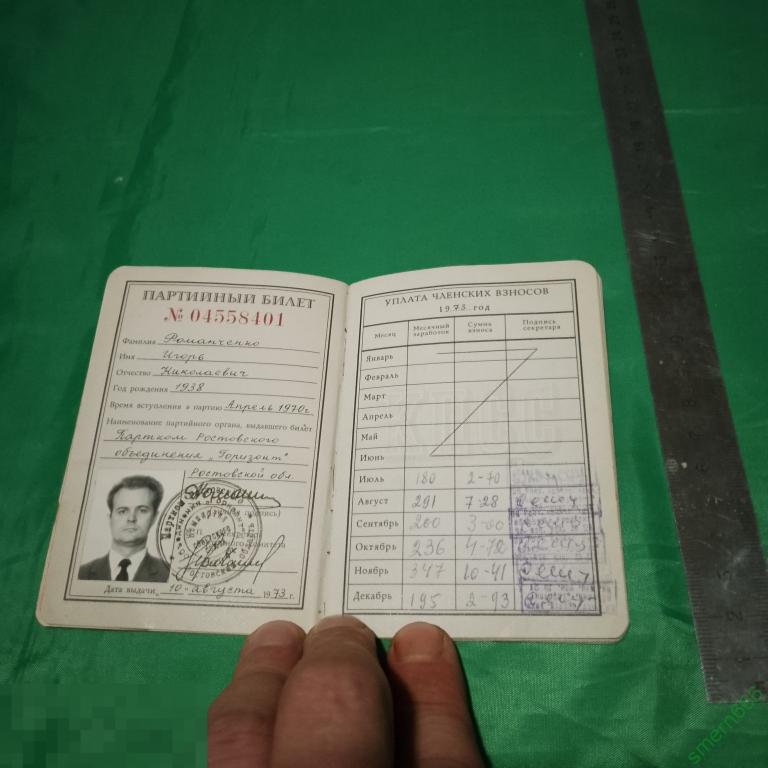 ПАРТИЙНЫЙ БИЛЕТ
№ 04558401
Фамилия Романченко
Имя Игорь
Отчество Николаевич
Год рождения 1938
Время вступления в партию Апрель 1970г
Наименование партийного органа, выдавшего билет
Партком Ростовского
объединения „Горизонт"
Ростовской обл.
Дата выдачи „10" августа 1973 г.
УПЛАТА ЧЛЕНСКИХ ВЗНОСОВ
1973 год
Месяц Месячный заработок Сумма взноса Подпись секретаря
Январь
Февраль
Март
Апрель
Май
Июнь
Июль 180 2-70
Август 291 7-28
Сентябрь 200 3-00
Октябрь 236 4-72
Ноябрь 347 10-41
Декабрь 195 2-93
КПСС
smern666